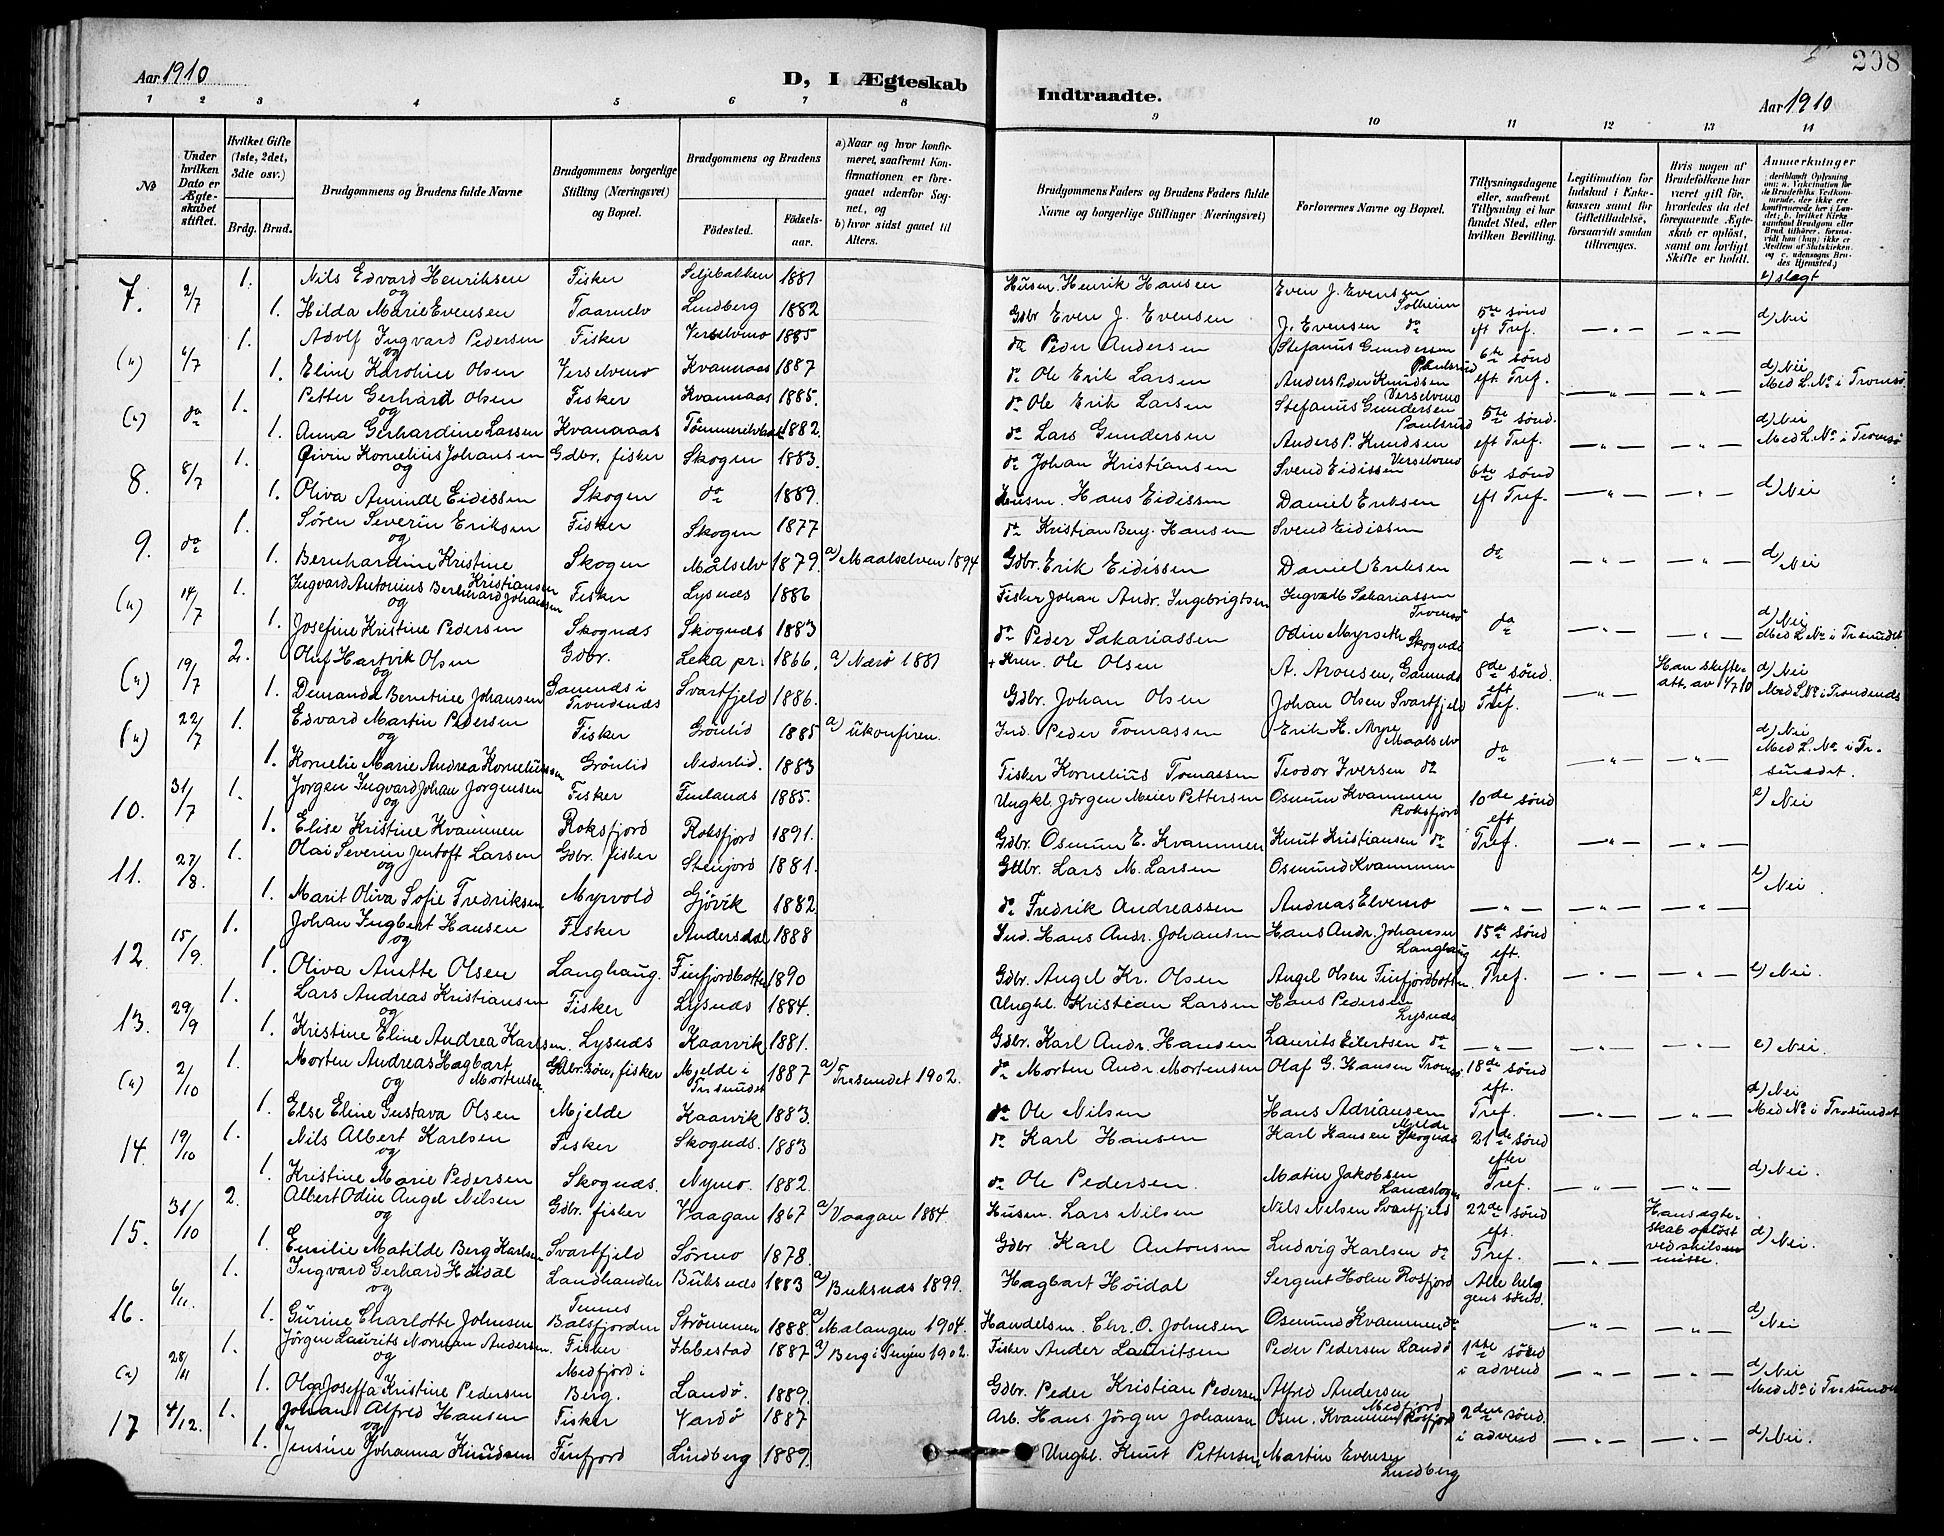 Aar 1910
D, I Ægteskab
Indtraadte.
Aar 1910
208
1 2 3 4 5 6 7 8
9 10 11 12 13 14
№
Under hvilken Dato er Ægteskabet stiftet.
Hvilket Gifte (1ste, 2det, 3die osv.)
Brdg. Brud.
Brudgommens og Brudens fulde Navne
Brudgommens borgerlige Stilling (Næringsvei) og Bopæl.
Brudgommens og Brudens
Fødested.
Fødselsaar.
a) Naar og hvor konfirmeret, saafremt Konfirmationen er foregaaet udenfor Sognet, og
b) hvor sidst gaaet til Alters.
Brudgommens Faders og Brudens Faders fulde Navne og borgerlige Stillinger (Næringsvei)
Forlovernes Navne og Bopæl.
Tillysningsdagene eller, saafremt Tillysning ei har fundet Sted, efter hvilken Bevilling.
Legitimation for Indskud i Enkekassen samt for Giftetilladelse, forsaavidt saadan tiltrænges.
Hvis nogen af Brudefolkene har været gift før, hvorledes da det foregaaende Ægteskab er opløst, samt om lovligt Skifte er holdt.
Anmerkninger
7. 2/7 1. Nils Edvard Henriksen Fisker Seljebakken 1881 Husm. Henrik Hansen Even J. Evensen e) slegt
og
1. Hilda Marie Evensen Taarnelv Lindberg 1882 Gdbr Even J. Evensen Solheim J. Evensen do 5te sønd eft Tref. d) Nei
(u) 6/7 1. Adolf Ingvard Pedersen Fisker Verselvmo 1885 do Peder Andersen Stefanus Gundersen Paulsrud 6te sønd
og
1. Eline Karoline Olsen Verselvmo Kvannaas 1887 do Ole Erik Larsen Anders Peder Knudsen Verselvmo eft. Tref. d) Nei Med L. No i Tromsø
(u) do 1. Petter Gerhard Olsen Fisker Kvannaas 1885. do Ole Erik Larsen Stefanus Gundersen Paulsrud 5te sønd.
og
1. Anna Gerhardine Larsen Kvanaaas 1882. do Lars Gundersen Anders P. Knudsen Verselvmo eft Tref. d) Nei Med L. No i Tromsø
8. 8/7 1. Eivin Kornelius Johansen Gdbr. fisker Skogen 1883. do Johan Kristiansen Svend Eidissen 6te sønd
og
1. Oliva Aminde Eidissen Skogen do 1889. Husm. Hans Eidissen Daniel Eriksen eft Tref. d) Nei
9. do 1. Søren Severin Eriksen Fisker Skogen 1877 do Kristian Benj. Hansen Svend Eidissen
og
1. Bernhardine Kristine Kristiansen Skogen Målselv 1879. a) Maalselven 1894 Gdbr. Erik Eidissen Daniel Eriksen do d) Nei
(u) 14/7 1. Ingvard Antonius Bernhard Johansen Fisker Lysnæs 1886 Fisker Johan Andr. Ingebrigtsen Ingvald Sakariassen Tromsø
og
1. Josefine Kristine Pedersen Skognæs Skognæs 1883 do Peder Sakariassen Odin Myrseth Skognæs do d) Nei Med L. No i Trosundet
(u) 19/7 2. Oluf Hartvik Olsen Gdbr. Leka pr. 1866. a) Nærø 1881 Ole Olsen A. Aronsen, Gamnæs 8de sønd. Han skifteatt. av 14/7 10
og
1. Demanda Berntine Johansen Gamnæs i Trondenæs Svartfjeld 1886. Gdbr. Johan Olsen Johan Olsen Svartfjeld eft Tref. d) Nei Med L. No i Trondenæs
(u) 22/7 1. Edvard Martin Pedersen Fisker Grönlid 1885 a) ukonfiren. Ind. Peder Tomassen Erik H. Myre Maalselv
og
1. Kornelie Marie Andrea Korneliussen Grönlid Nederlid. 1883 Fisker Kornelius Tomassen Teodor Iversen do do d) Nei Med L. No i Trsundet.
10. 31/7 1. Jørgen Ingvard Johan Jørgensen Fisker Finlands 1885. Ungkl. Jörgen Meier Pettersen Osmun Kvammen Roksfjord 10de sønd
og
1. Elise Kristine Kvammen Roksfjord Roksfjord 1891. Gdbr. Osmun E. Kvammen Knut Kristiansen do eft Tref. e) Nei
11. 27/8. 1. Olai Severin Jentoft Larsen Gdbr. fisker Stenjord 1881. Gdbr. Lars M. Larsen Osmund Kvammen
og
1. Marit Oliva Sofie Fredriksen Myrvold Gjövik 1882. do Fredrik Andreassen Andreas Elvemo e) Nei.
12. 15/9. 1. Johan Ingbert Hansen Fisker Andersdal 1888 Ind. Hans Andr. Johansen Hans Andr. Johansen Langhaug 15de sønd
og
1. Oliva Anette Olsen Langhaug. Finfjordbotten 1890 Gdbr. Angel Kr. Olsen Angel Olsen Finfjordbotten eft. Tref. e) Nei.
13. 29/9 1. Lars Andreas Kristiansen Fisker Lysnæs 1884. Ungkl. Kristian Larsen Hans Pedersen Lysnæs
og
1. Kristine Eline Andrea Karlsen. Lysnæs Kaarvik 1881. Gdbr. Karl Andr. Hansen Laurits Eilertsen do e) Nei.
(u) 2/10 1. Morten Andreas Hagbart Mortensen Gdbr.søn, fisker Mjelde i Trsundet 1887 a) Trosundet 1902. do Morten Andr Mortensen Olaf G. Hansen Tromsø. 18de sønd
og
1. Else Eline Gustava Olsen Mjelde Kaarvik 1883. do Ole Nilsen Hans Adriansen Mjelde eft. Tref. d) Nei Med No i Trosundet
14. 19/10 1. Nils Albert Karlsen Fisker Skognæs. 1883 do Karl Hansen Karl Hansen Skognæs 21de sønd
og
1. Kristine Marie Pedersen Skognæs. Nymo. 1882. do Ole Pedersen. Matin Jakobsen efter Tref. d) Nei.
15. 31/10 2. Albert Odin Angel Nilsen Gdbr. fisker Vaagan 1867 a) Vaagan 1884. Husm. Lars Nilsen Nils Nilsen Svartfjeld 22de sønd Hans ægteskab opløst ved skilsmisse.
og
1. Emilie Matilde Berg Karlsen Svartfjeld Sörmo 1878. Gdbr. Karl Antonsen Ludvig Karlsen do eft. Tref. d) Nei.
16. 6/11. 1. Ingvard Gerhard Höidal Landhandler Buksnæs 1883 a) Buksnæs 1899. Hagbart Höidal Sergent Holm Rosfjord Alle helgens sønd.
og
1. Gurine Charlotte Johnsen Tennes Balsfjorden Strömmen 1888. a) Malangen 1904. Handelsm. Chr. O. Johnsen Osmund Kvammen do d) Nei
(u) 28/11 1. Jörgen Laurits Norman Andersen. Fisker Ibbestad 1887 a) Berg i Senjen 1902. Fisker Ander Lauritsen Peder Pedersen Landö 1ste sønd
og
1. Olga Joseffa Kristine Pedersen Medfjord i Berg. Landö. 1889. Gdbr. Peder Kristian Pedersen Alfred Andersen Medfjord i advend d) Nei Med No i Trosundet
17 4/12. 1. Johan Alfred Hansen Fisker Vardö 1887 Arb. Hans Jörgen Johansen Osm. Kvammen Rosfjord 2den sønd.
og
1. Jensine Johanna Knudsen Finfjord Lindberg 1889. Ungkl. Knut Pettersen Martin Evensen Lindberg i advend d) Nei.